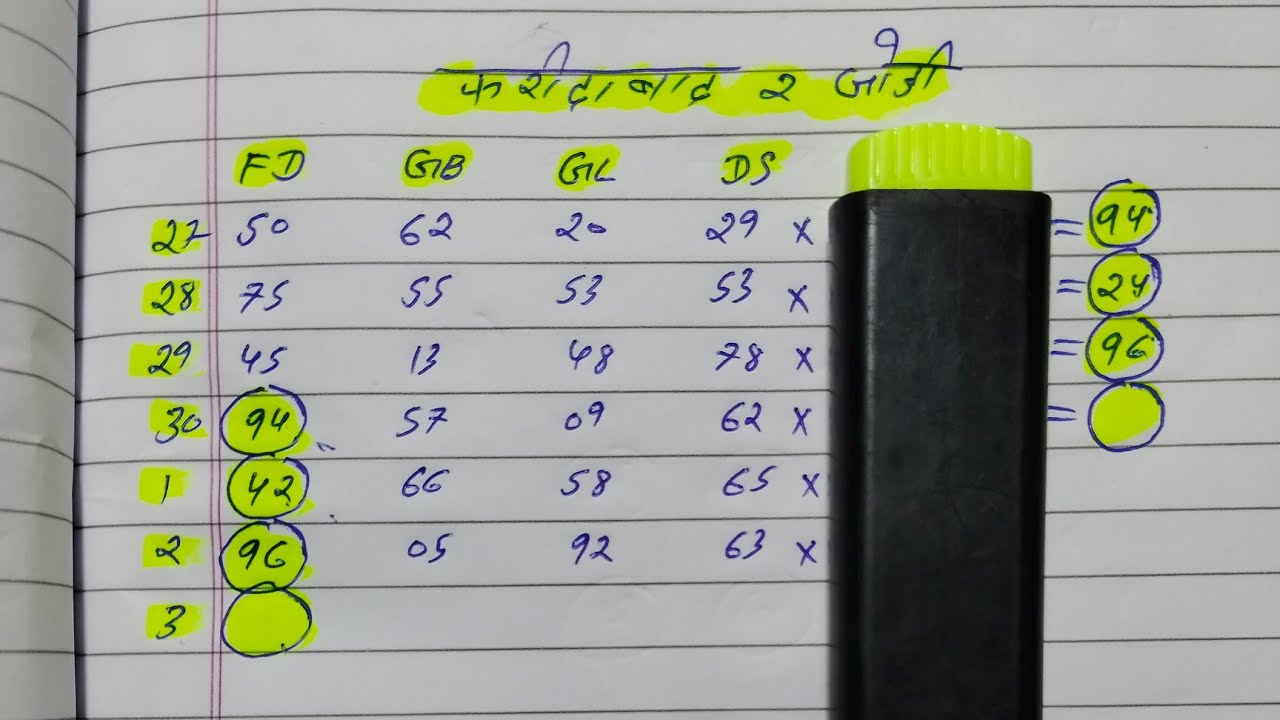 फरीदाबाद २ जोड़ी
FD GB GL DS
27 50 62 20 29 × = 94
28 75 55 53 53 × = 24
29 45 13 48 78 × = 96
30 94 57 09 62 × =
1 42 66 58 65 ×
2 96 05 92 63 ×
3